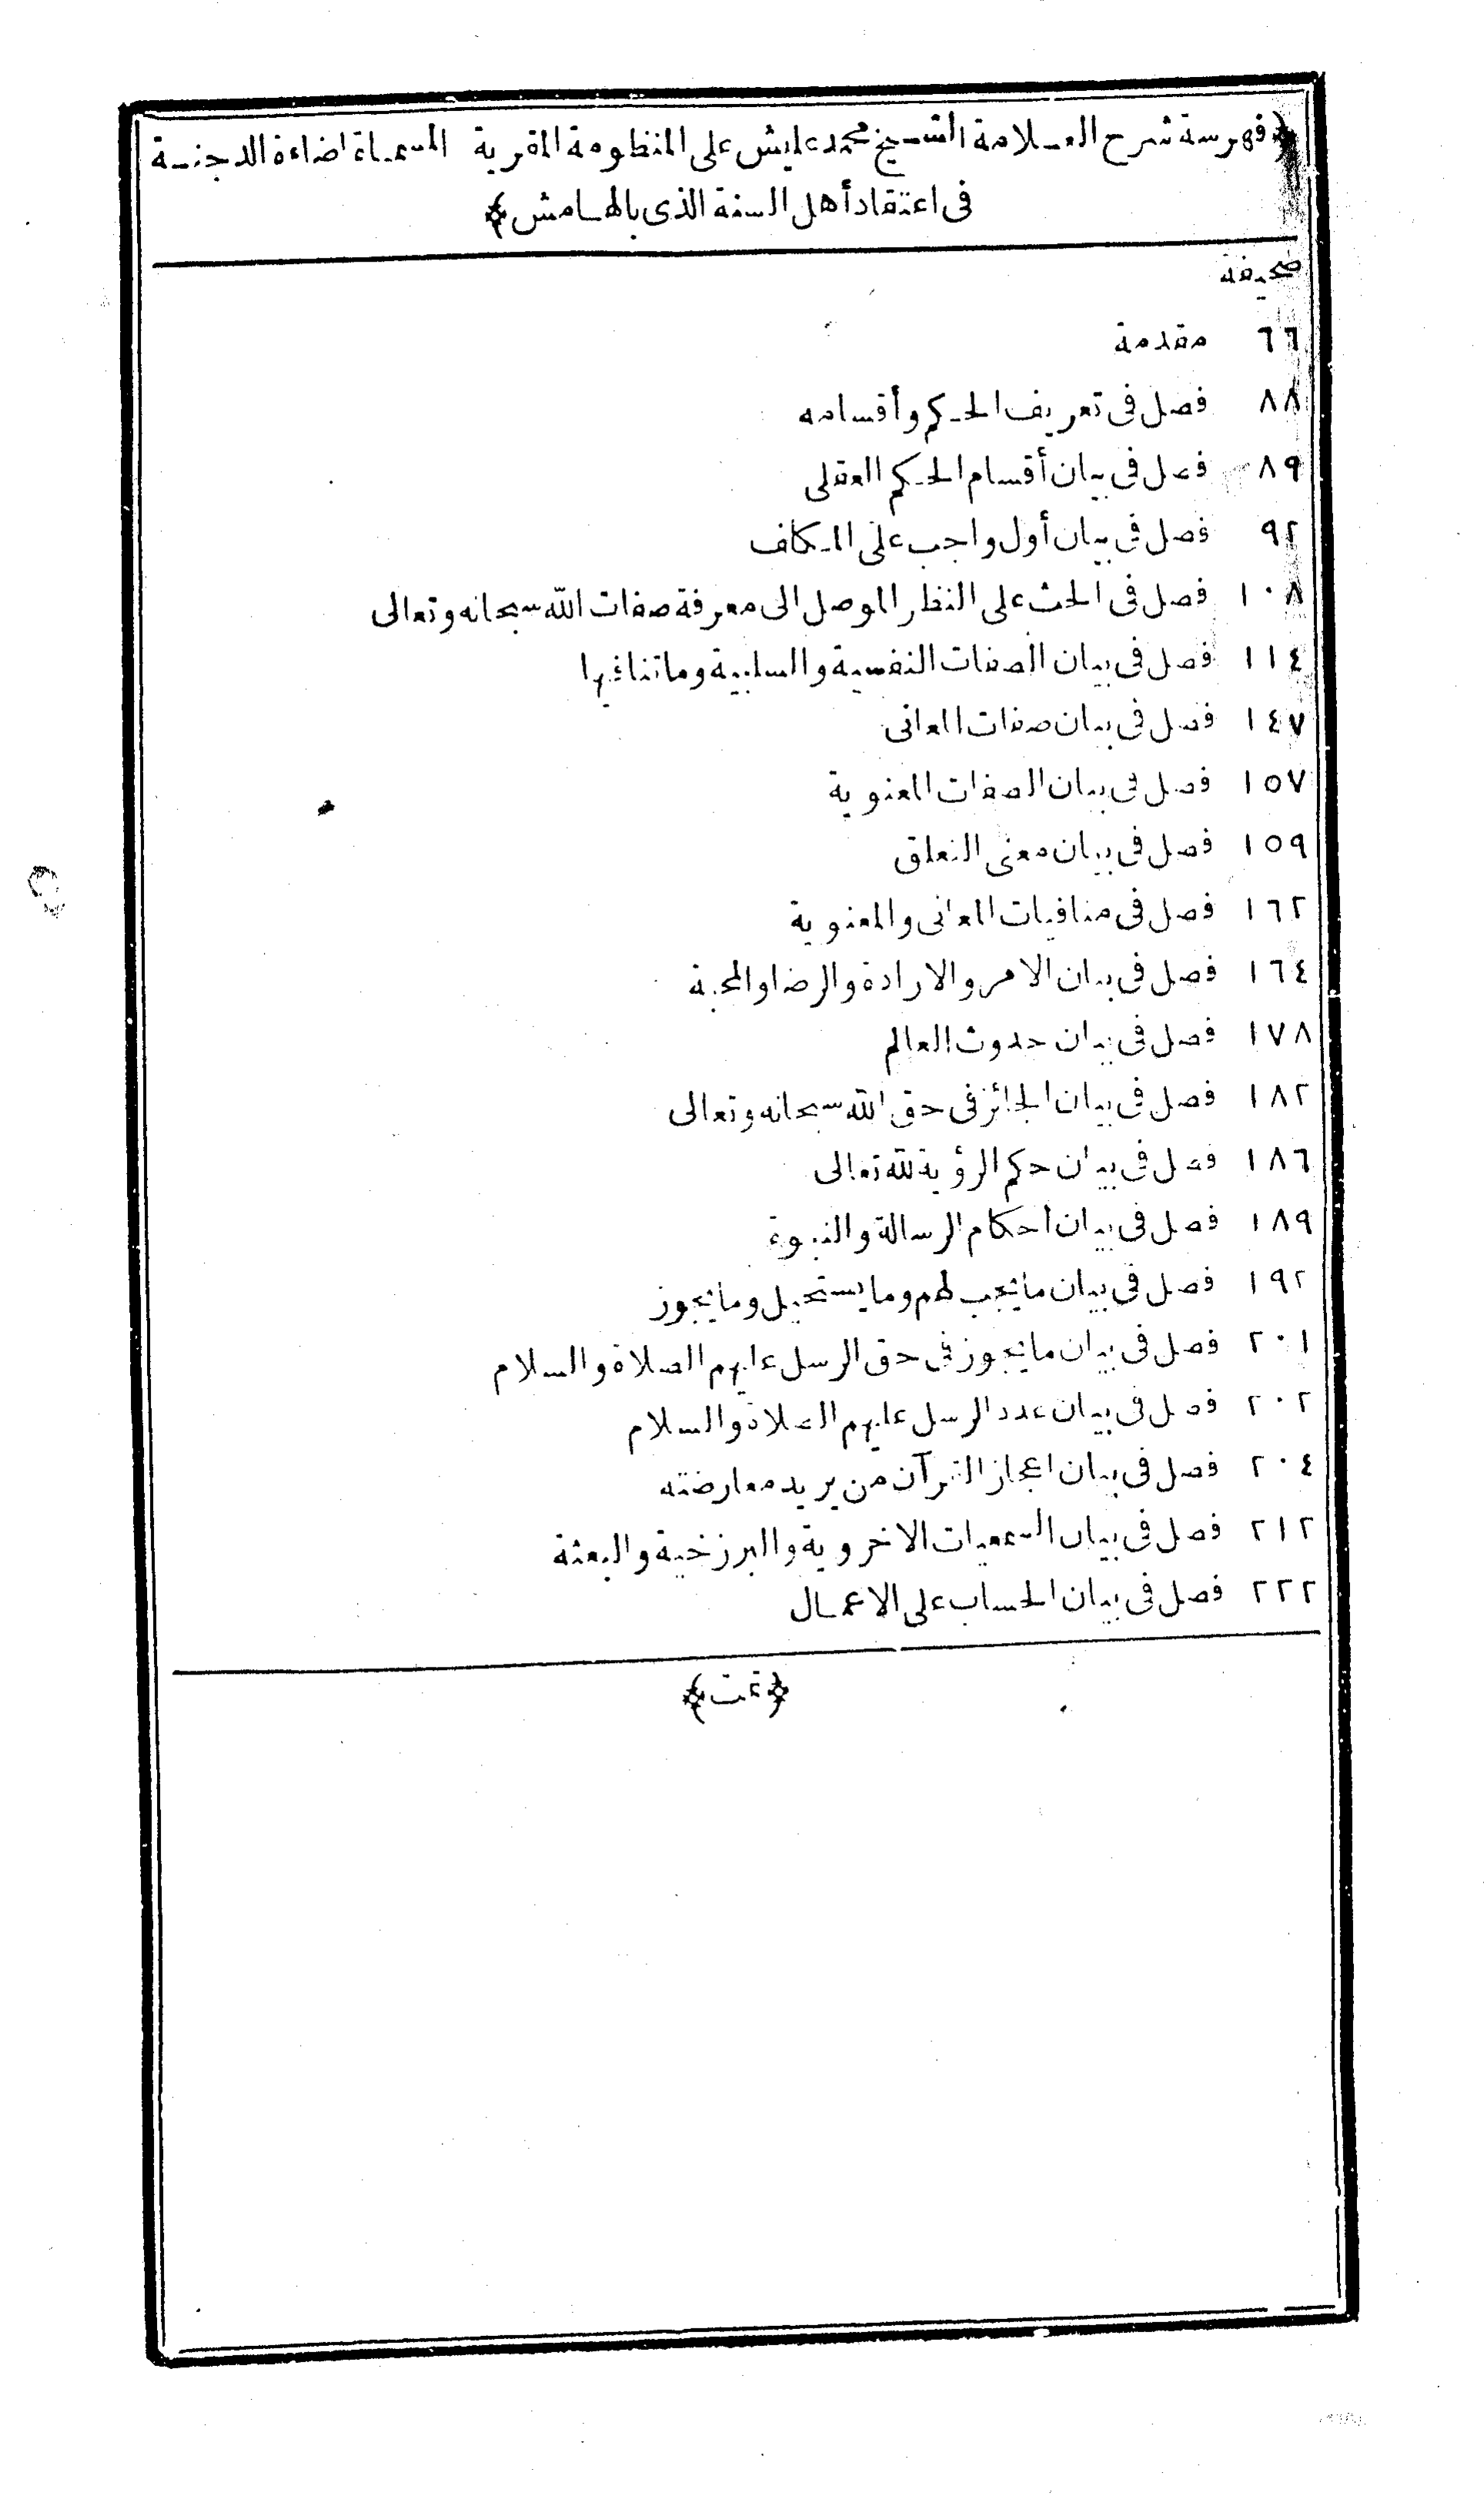 ﴿فهرسة شرح العلامة الشيخ محمد عليش على المنظومة المقرية المسماة اضاءة الدجنة
فى اعتقاد أهل السنة الذى بالهامش﴾
صحيفة
٦٦ مقدمة
٨٨ فصل فى تعريف الحكم وأقسامه
٨٩ فصل فى بيان أقسام الحكم العقلى
٩٢ فصل فى بيان أول واجب على المكلف
١٠٨ فصل فى الحث على النظر الموصل الى معرفة صفات الله سبحانه وتعالى
١١٤ فصل فى بيان الصفات النفسية والسلبية وما تنافيها
١٤٧ فصل فى بيان صفات المعانى
١٥٧ فصل فى بيان الصفات المعنوية
١٥٩ فصل فى بيان معنى التعلق
١٦٢ فصل فى منافيات المعانى والمعنوية
١٦٤ فصل فى بيان الامر والارادة والرضا والمحبة
١٧٨ فصل فى بيان حدوث العالم
١٨٢ فصل فى بيان الجائز فى حق الله سبحانه وتعالى
١٨٦ فصل فى بيان حكم الرؤية لله تعالى
١٨٩ فصل فى بيان أحكام الرسالة والنبوة
١٩٢ فصل فى بيان ما يجب لهم وما يستحيل وما يجوز
٢٠١ فصل فى بيان ما يجوز فى حق الرسل عليهم الصلاة والسلام
٢٠٢ فصل فى بيان عدد الرسل عليهم الصلاة والسلام
٢٠٤ فصل فى بيان اعجاز القرآن من يريد معارضته
٢١٢ فصل فى بيان السمعيات الاخروية والبرزخية والبعثة
٢٢٢ فصل فى بيان الحساب على الاعمال
﴿تمت﴾